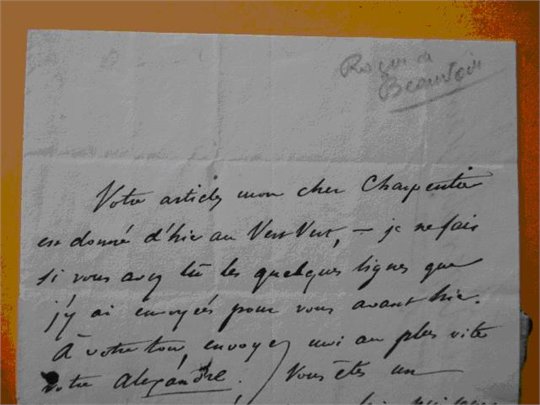 Roger de
Beauvoir
Votre article, mon cher Charpentier
est donné d'hier au Vert Vert, — je ne sais
si vous avez lu les quelques lignes que
j'y ai envoyées pour vous avant hier.
À votre tour, envoyez moi au plus vite
votre Alexandre. / Vous êtes un